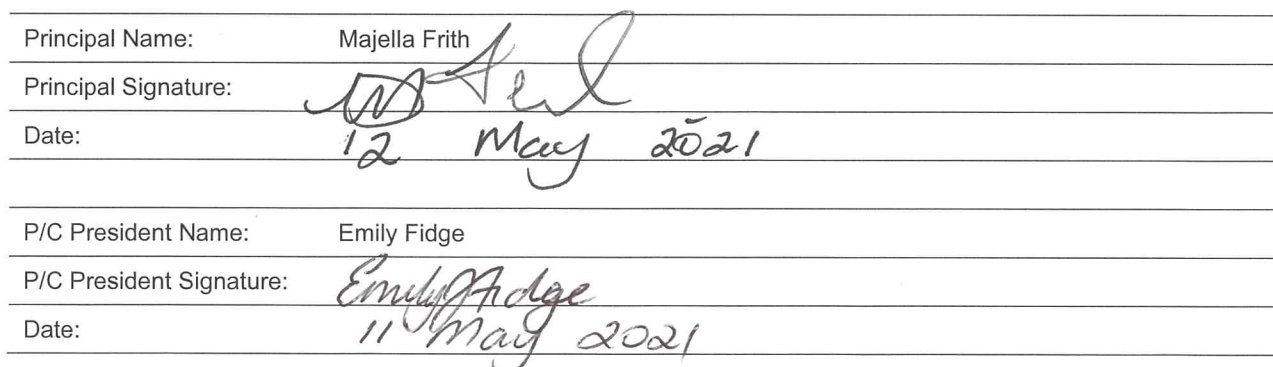 Principal Name: Majella Frith
Principal Signature:
Date: 12 May 2021
P/C President Name: Emily Fidge
P/C President Signature: Emily Fidge
Date: 11 May 2021